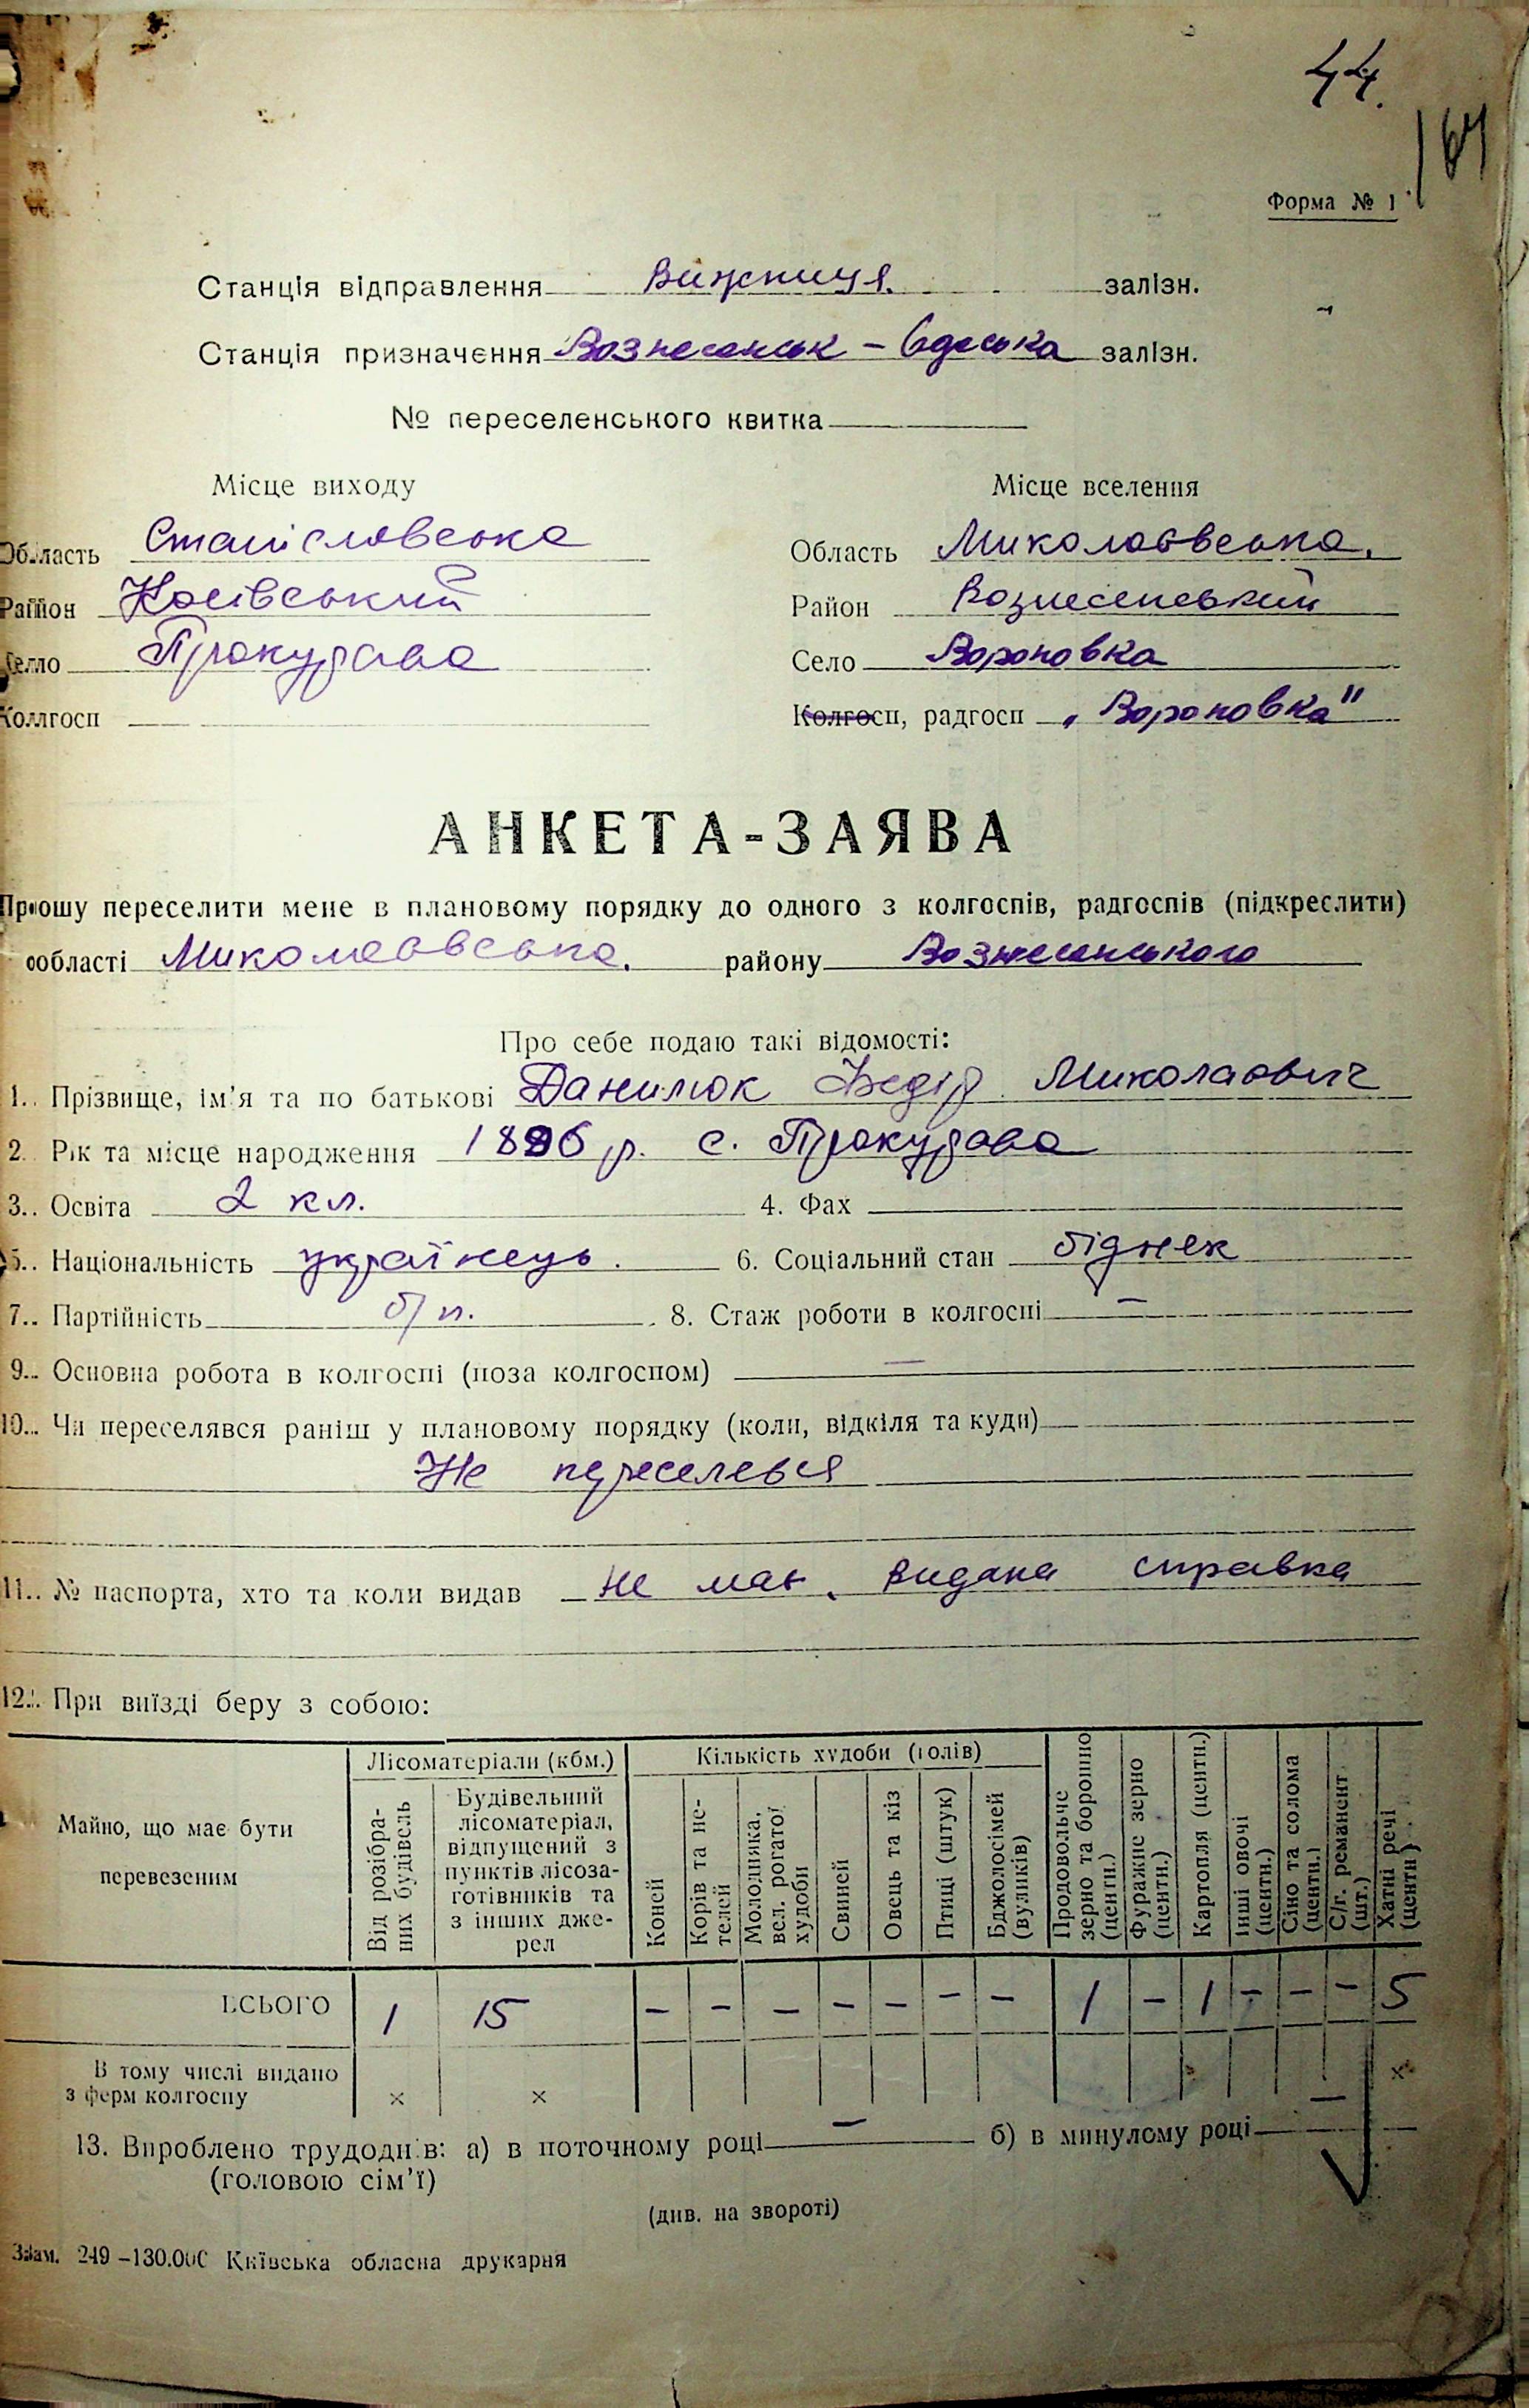 44.
164
Форма № 1
Станція відправлення Вижниця. залізн.
Станція призначення Вознесенськ – Одеська залізн.
№ переселенського квитка
Місце виходу Місце вселення
Область Станіславська Область Миколаївська.
Район Косівський Район Вознесенський
Село Прокурава Село Вороновка
Колгосп — Колгосп, радгосп „Вороновка"
АНКЕТА-ЗАЯВА
Прошу переселити мене в плановому порядку до одного з колгоспів, радгоспів (підкреслити)
області Миколаївська. району Вознесенського
Про себе подаю такі відомості:
1. Прізвище, ім'я та по батькові Данилюк Федір Миколайович
2. Рік та місце народження 1896 р. с. Прокурава
3. Освіта 2 кл. 4. Фах
5. Національність українець. 6. Соціальний стан бідняк
7. Партійність б/п. 8. Стаж роботи в колгоспі —
9. Основна робота в колгоспі (поза колгоспом) —
10. Чи переселявся раніш у плановому порядку (коли, відкіля та куди)
Не переселевся
11. № паспорта, хто та коли видав Не має. Видана справка
12. При виїзді беру з собою:
Майно, що має бути перевезеним
Лісоматеріали (кбм.)
Від розібраних будівель
Будівельний лісоматеріал, відпущений з пунктів лісозаготівників та з інших джерел
Кількість худоби (голів)
Коней
Корів та нетелей
Молодняка, вел. рогатої худоби
Свиней
Овець та кіз
Птиці (штук)
Бджолосімей (вуликів)
Продовольче зерно та борошно (центн.)
Фуражне зерно (центн.)
Картопля (центн.)
Інші овочі (центн.)
Сіно та солома (центн.)
С/г. реманент (шт.)
Хатні речі (центн)
ВСЬОГО 1 15 – – – – – – – 1 – 1 – – – 5
В тому числі видано
з ферм колгоспу × × ×
13. Вироблено трудоднів: а) в поточному році — б) в минулому році —
(головою сім'ї)
(див. на звороті)
Зам. 249–130.000 Київська обласна друкарня